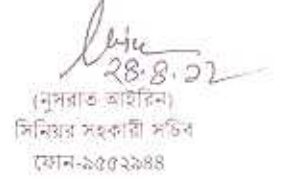 28.8.22
(নুসরাত আইরিন)
সিনিয়র সহকারী সচিব
ফোন-৯৫৫২৯৪৪